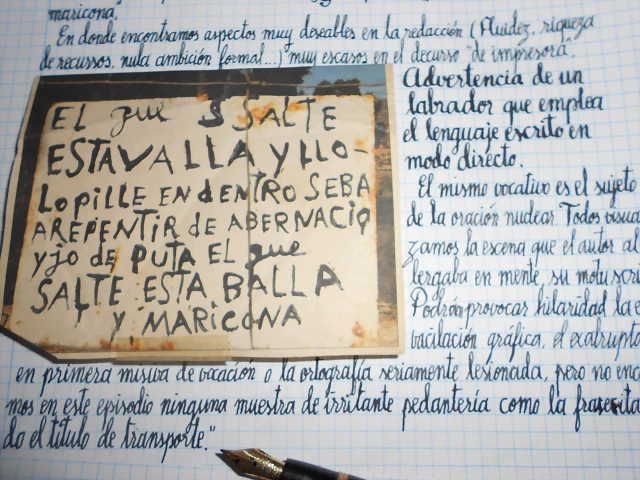 maricona.
En donde encontramos aspectos muy deseables en la redacción (Fluidez, riqueza
de recursos, nula ambición formal...) muy escasos en el decurso "de impresora".
EL que SSALTE
ESTAVALLA Y LLO-
LO PILLE EN dENTRO SEBA
AREPENTIR de ABERNACIO
y jo de PUTA EL que
SALTE ESTA BALLA
Y MARICONA
Advertencia de un
labrador que emplea
el lenguaje escrito en
modo directo.
El mismo vocativo es el sujeto
de la oración nuclear. Todos visua
zamos la escena que el autor al
bergaba en mente, su motu scri
Podrán provocar hilaridad la e
vacilación gráfica, el exabrupto
en primera misiva de vocación o la ortografía seriamente lesionada, pero no enc
mos en este episodio ninguna muestra de irritante pedantería como la frasecita
do el título de transporte."